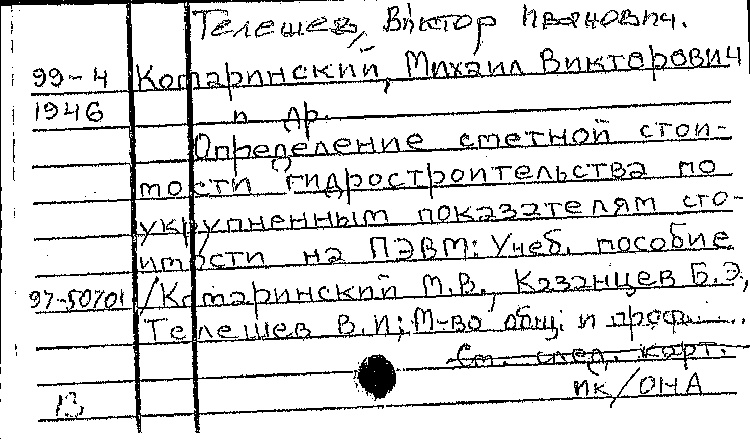 Телешев, Виктор Иванович.
99-4 Комаринский, Михаил Викторович
1946 и др.
Определение сметной стои-
мости гидростроительства по
укрупненным показателям сто-
имости на ПЭВМ: Учеб. пособие
97-50701 /Комаринский М.В., Казанцев Б.Э.,
Телешев В.И; М-во общ. и проф.
См. след. карт.
13 ПК/ОНА